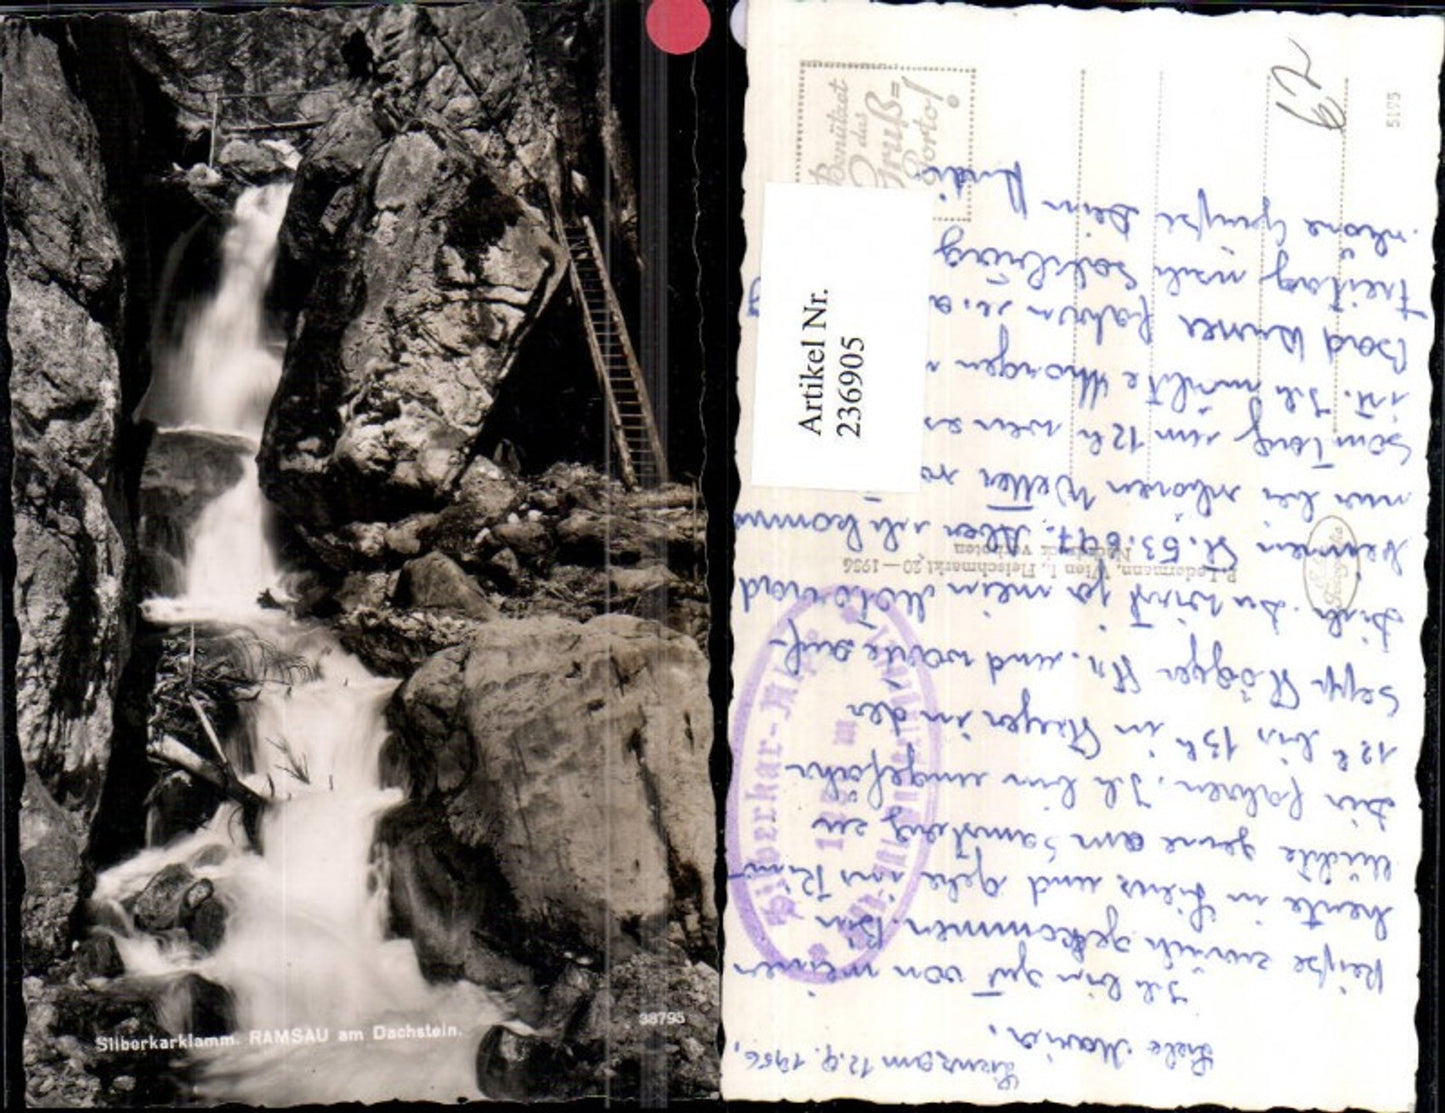 Silberkarklamm. RAMSAU am Dachstein.
38795
Artikel Nr.
236905
Benützet
das
Gruß=
Porto!
62
5195
P. Ledermann, Wien I, Fleischmarkt 20 — 1956
Nachdruck verboten
Silberkar-
m
Lienz am 12.9.1956,
Liebe Maria,
Ich bin gut von meiner
Reise zurück gekommen. Bin
heute in Lienz und gehe ins Kino
Möchte gerne am Samstag zu
Dir fahren. Ich bin ungefähr
12h bis 13h in
Sepp und warte auf
Dich. Du wirst ja mein Motorrad
kennen St. 53.647. Aber ich komm
nur bei schönen Wetter
Samtag um 12h wen es
ist. Ich möchte Morgen
Bad fahren
Freitag nach Salzburg
schöne Grüße Dein Rudi